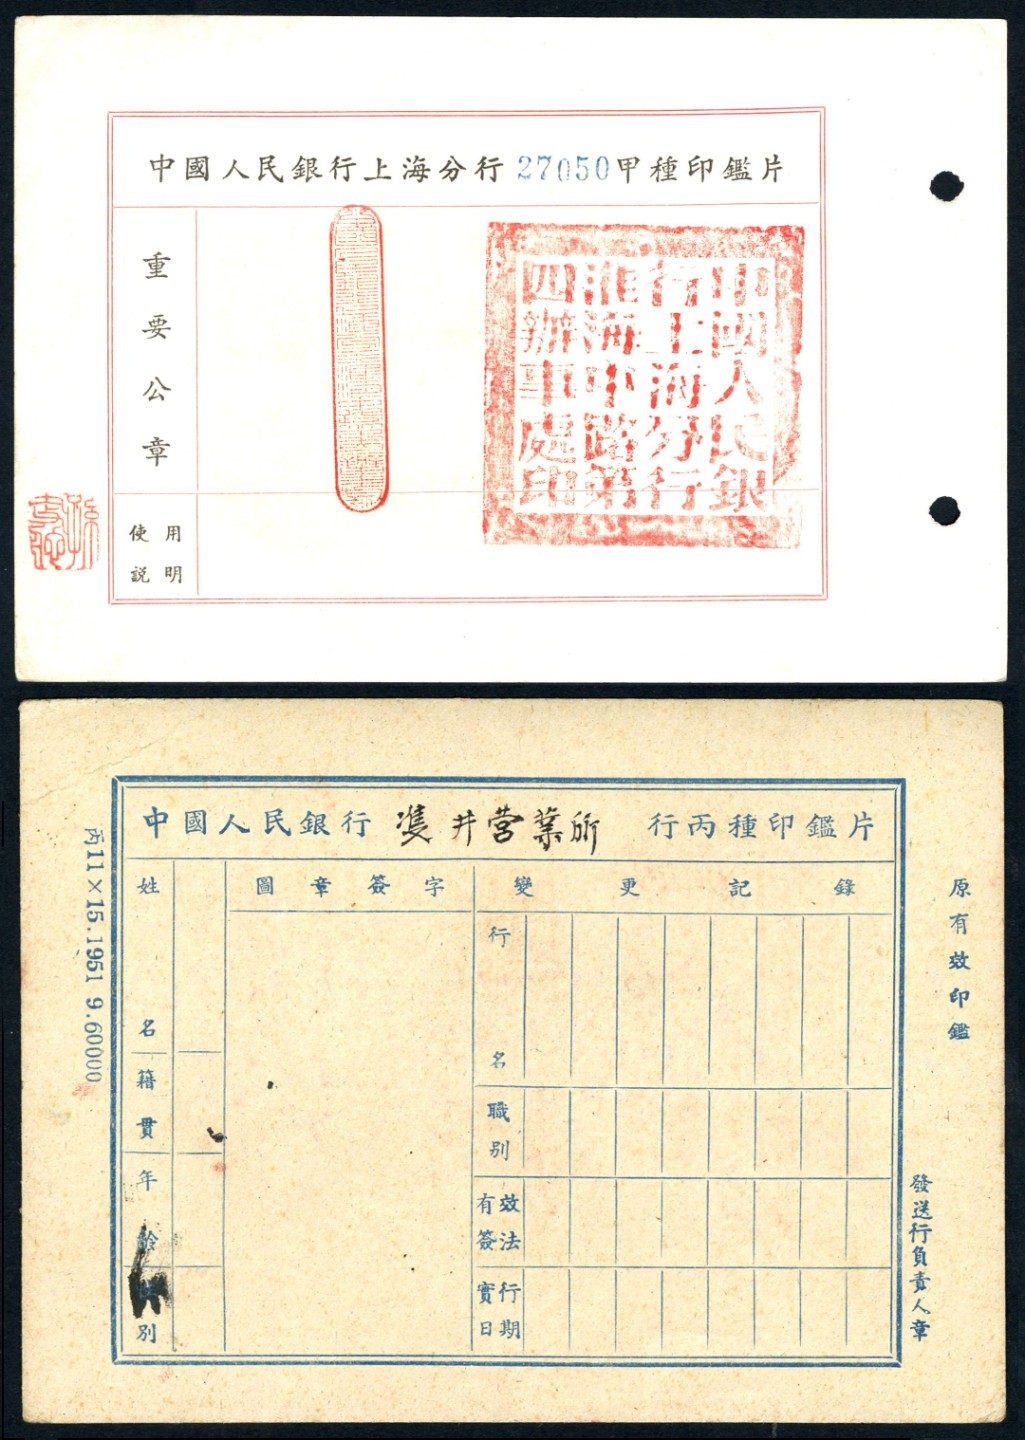 中國人民銀行上海分行 27050 甲種印鑑片
重要公章
中國人民銀
行上海分行
淮海中路第
四辦事處印
使用
説明
中國人民銀行 雙井营業所 行丙種印鑑片
姓名
籍貫
年齡
別
圖章簽字
變更記錄
行名
職別
有效
簽法
實行
日期
原有效印鑑
發送行負責人章
丙11×15.1951 9.60000